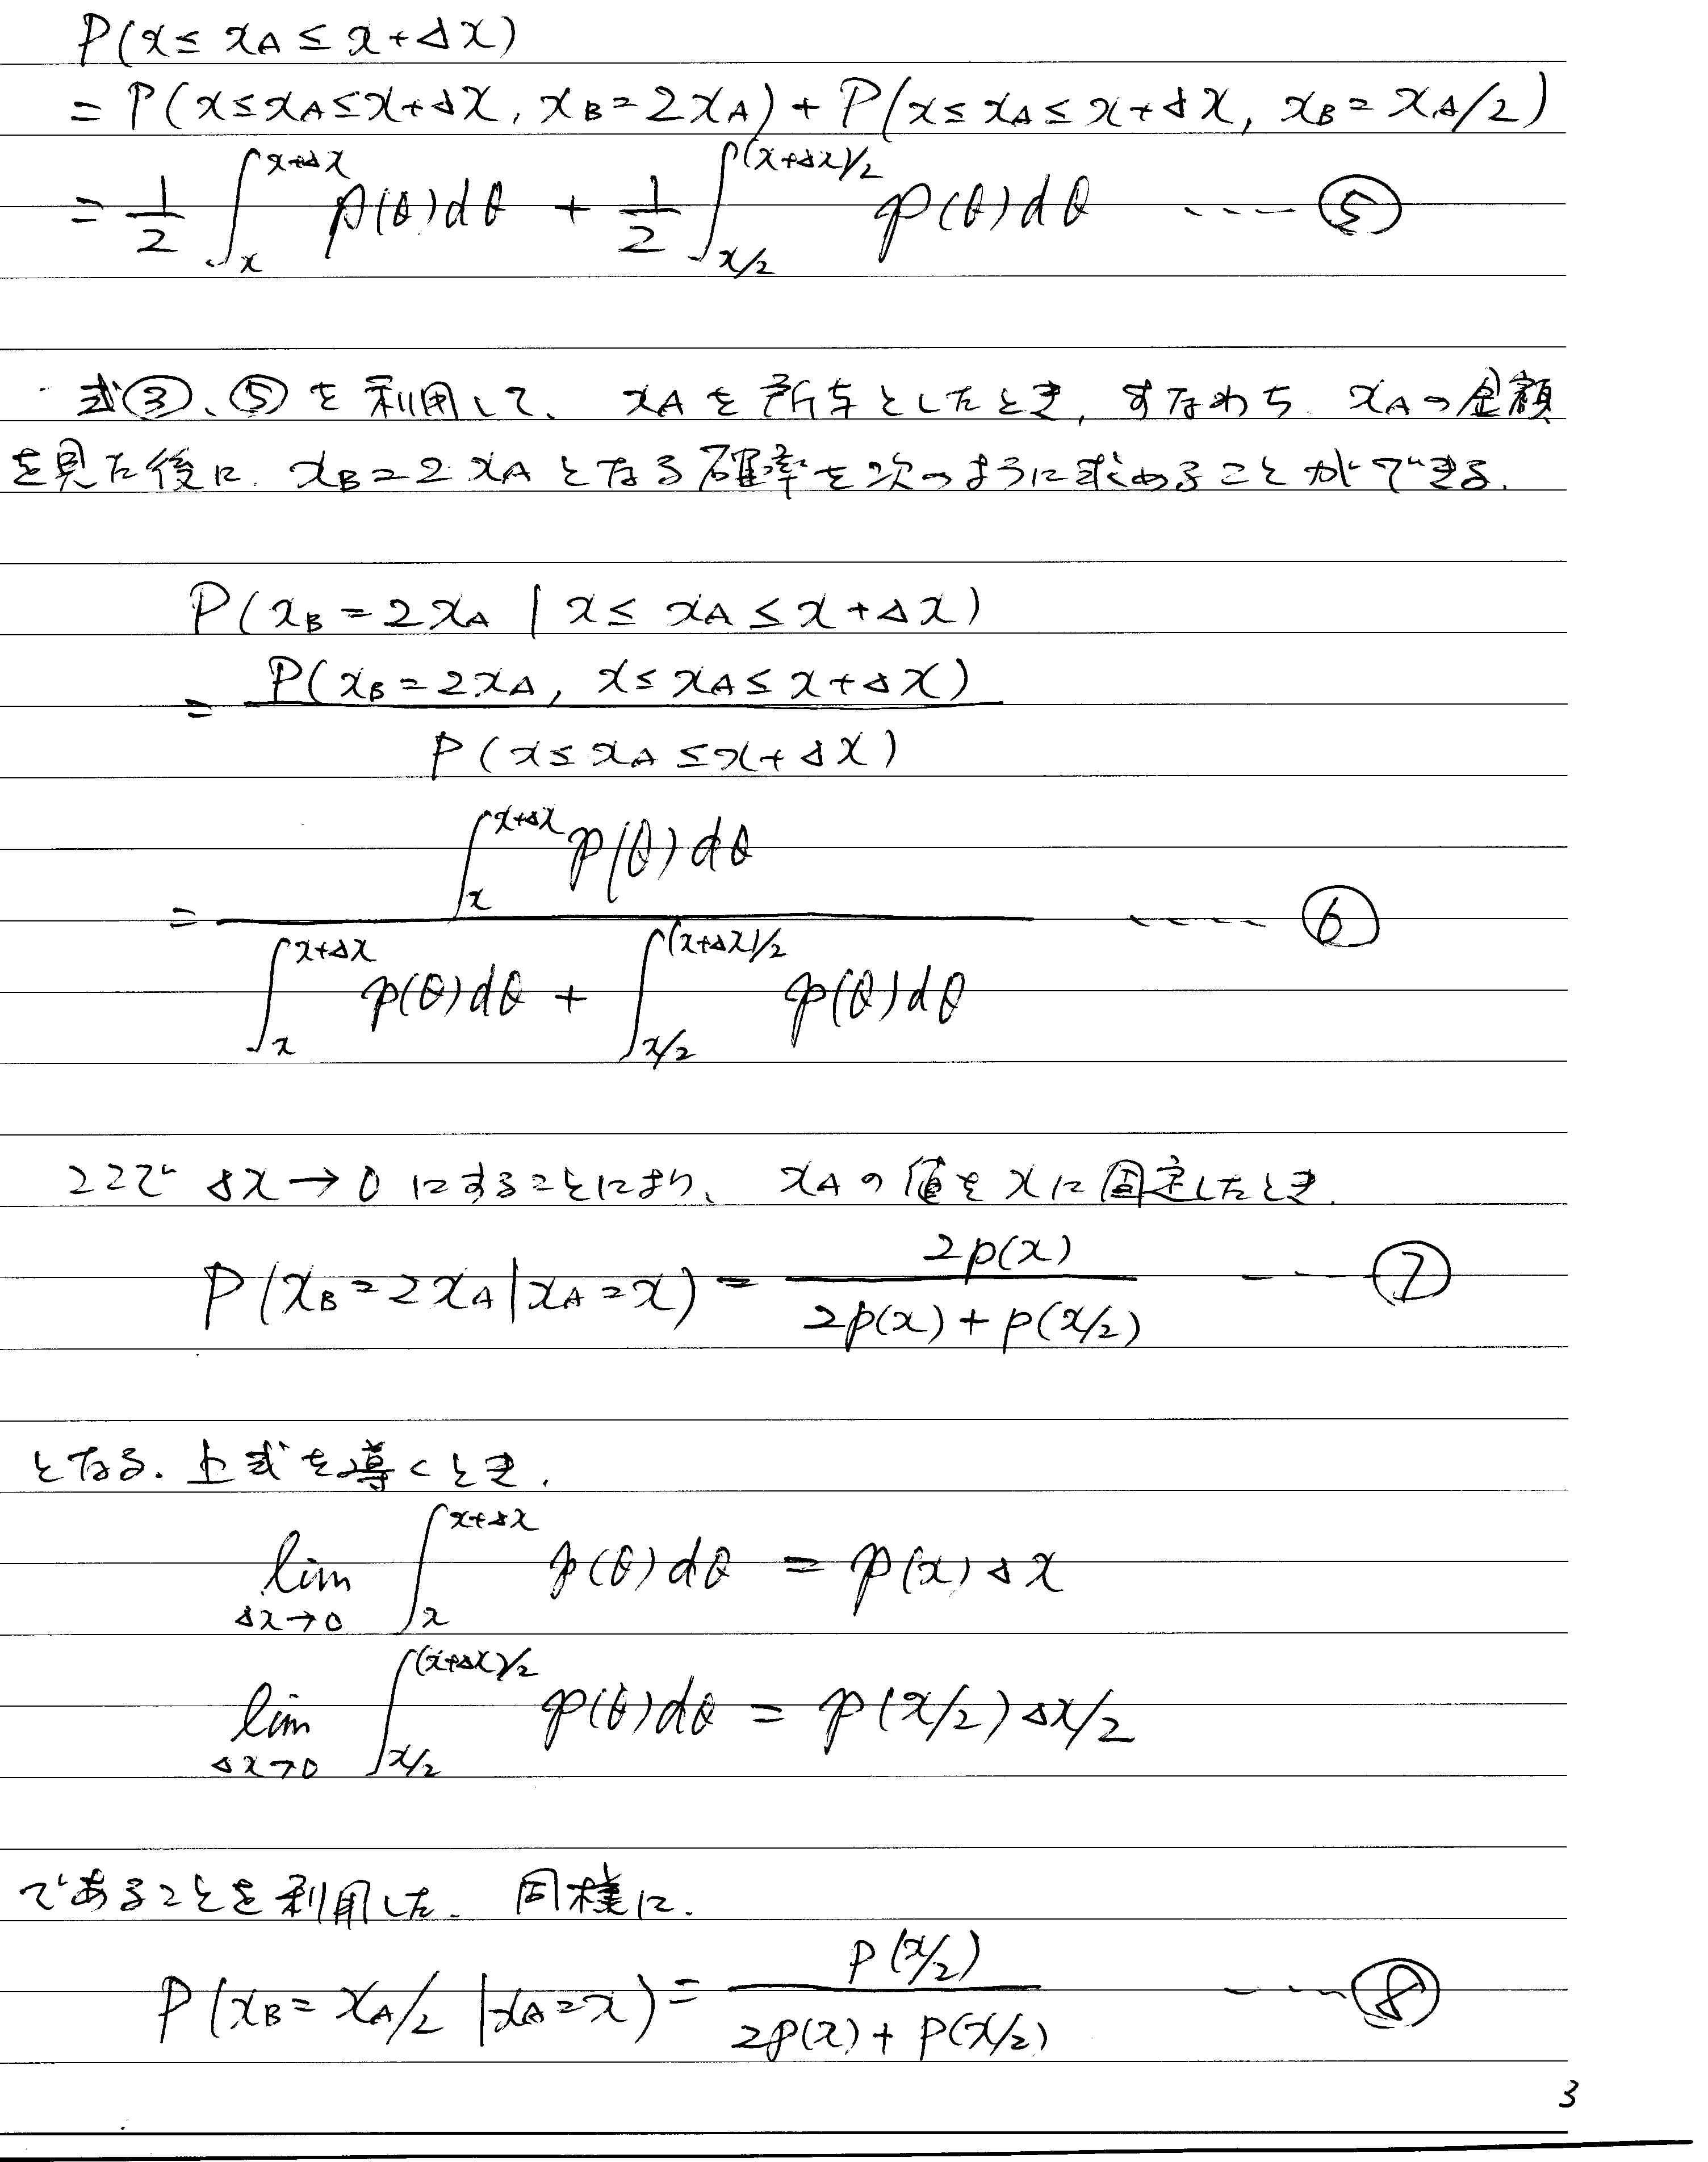 P(x ≤ xA ≤ x+Δx)
= P(x≤xA≤x+Δx, xB=2xA) + P(x≤xA≤x+Δx, xB=xA/2)
= 1/2 ∫_x^{x+Δx} p(θ)dθ + 1/2 ∫_{x/2}^{(x+Δx)/2} p(θ)dθ ---- ⑤
式③、⑤を利用して、xAを所与としたとき, すなわち xAの金額
を見た後に xB=2xAとなる確率を次のように求めることができる.
P(xB=2xA | x≤ xA ≤ x+Δx)
= P(xB=2xA, x≤xA≤x+Δx) / P(x≤xA≤x+Δx)
= ∫_x^{x+Δx} p(θ)dθ / (∫_x^{x+Δx} p(θ)dθ + ∫_{x/2}^{(x+Δx)/2} p(θ)dθ) ----- ⑥
ここで Δx→0 にすることにより、xAの値をxに固定したとき.
P(xB=2xA|xA=x) = 2p(x) / (2p(x)+p(x/2)) ---- ⑦
となる. 上式を導くとき.
lim_{Δx→0} ∫_x^{x+Δx} p(θ)dθ = p(x)Δx
lim_{Δx→0} ∫_{x/2}^{(x+Δx)/2} p(θ)dθ = p(x/2)Δx/2
であることを利用した. 同様に.
P(xB=xA/2 |xA=x) = p(x/2) / (2p(x)+p(x/2)) ---- ⑧
3